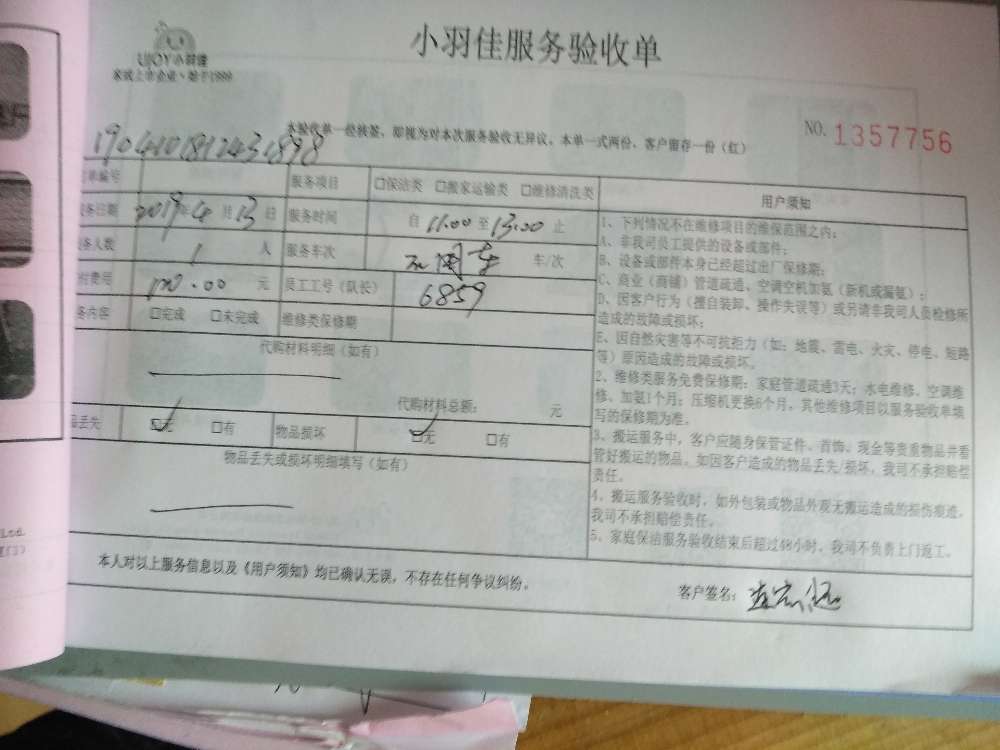 小羽佳服务验收单
UJOY小羽佳
家政上市企业·始于1999
本验收单一经核签,即视为对本次服务验收无异议。本单一式两份,客户留存一份(红)
NO. 1357756
单编号
服务项目 □保洁类 □搬家运输类 □维修清洗类
务日期 2019年4月13日 服务时间 自 11:00 至 13:00 止
务人数 1 人 服务车次 车/次
付费用 .00 元 员工工号(队长) 6859
务内容 □完成 □未完成 维修类保修期
代购材料明细(如有)
代购材料总额: 元
品丢失 ☑无 □有 物品损坏 ☑无 □有
物品丢失或损坏明细填写(如有)
用户须知
1、下列情况不在维修项目的维保范围之内:
A、非我司员工提供的设备或部件;
B、设备或部件本身已经超过出厂保修期;
C、商业(商铺)管道疏通、空调空机加氨(新机或漏氨);
D、因客户行为(擅自装卸、操作失误等)或另请非我司人员检修所
造成的故障或损坏;
E、因自然灾害等不可抗拒力(如:地震、雷电、火灾、停电、短路
等)原因造成的故障或损坏。
2、维修类服务免费保修期:家庭管道疏通3天;水电维修、空调维
修、加氨1个月;压缩机更换6个月。其他维修项目以服务验收单填
写的保修期为准。
3、搬运服务中,客户应随身保管证件、首饰、现金等贵重物品并看
管好搬运的物品。如因客户造成的物品丢失/损坏,我司不承担赔偿
责任。
4、搬运服务验收时,如外包装或物品外观无搬运造成的损伤痕迹,
我司不承担赔偿责任。
5、家庭保洁服务验收结束后超过48小时,我司不负责上门返工。
本人对以上服务信息以及《用户须知》均已确认无误,不存在任何争议纠纷。
客户签名: